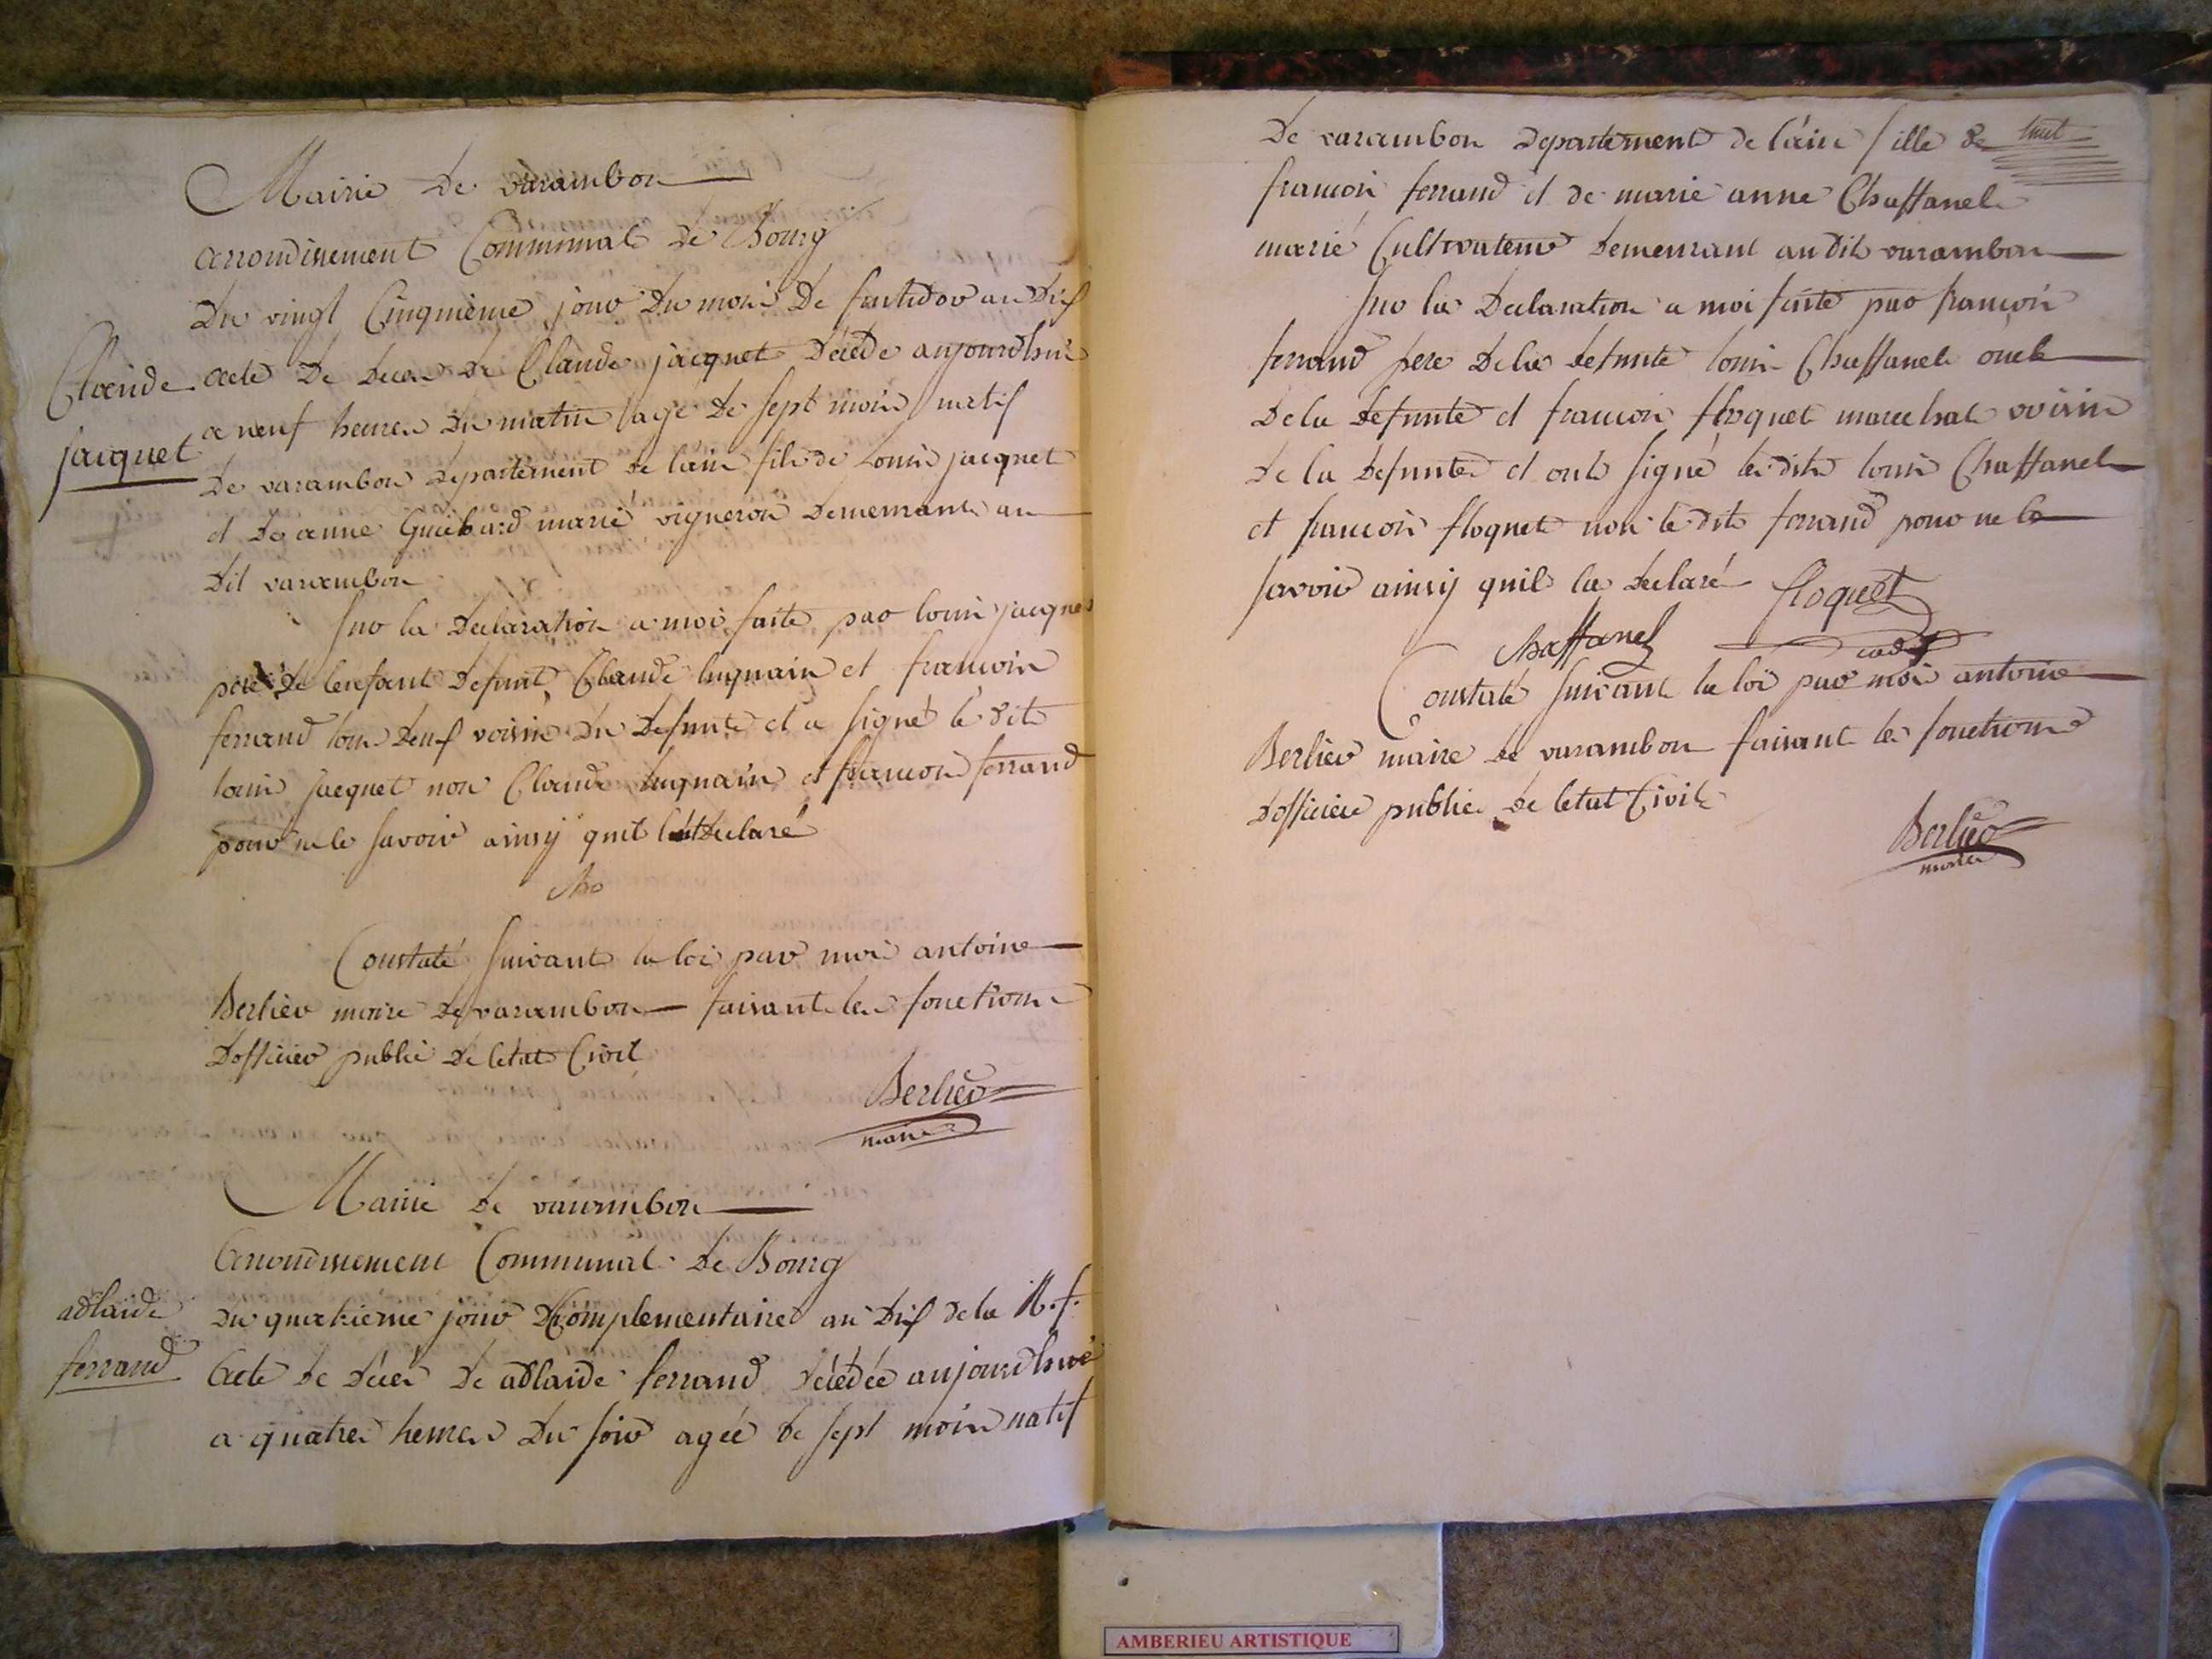 Mairie de varambon
arrondissement Communal de Bourg
Du vingt Cinquieme jour du mois de fructidor an dix
Claude
jacquet
acte de deces de Claude jacquet décédé aujourdhui
a neuf heures du matin age de sept mois natif
de varambon departement de lain fils de Louis jacquet
et de anne Guichard marié vigneron demeurant au
dit varambon
Sur la declaration a moi faite par louis jacquet
pere de lenfant defunt, Claude luquain et francois
ferrand tous deux voisin du defunt et a signé le dit
louis jacquet non Claude luquain et francois ferrand
pour ne le savoir ainsy quil lont declaré
Constaté suivant la loi par moi antoine
Berlier maire de varambon faisant les fonctions
dofficier public de letat Civil
Berlier
maire
Mairie de varambon
Arrondissement Communal de Bourg
adlaide
ferrand
du quatrieme jour Complementaire an dix de la R. f.
Acte de déces de adlaide ferrand décédée aujourdhui
a quatre heures du soir agée de sept mois natif
de varambon departement de lain fille de
francois ferrand et de marie anne Chaffanel
marié Cultivateur demeurant au dit varambon
Sur la declaration a moi faite par francois
ferrand pere de la defunte louis Chaffanel oncle
de la defunte et francois floquet marechal voisin
de la defunte et ont signé les dits louis Chaffanel
et francois floquet non le dit ferrand pour ne le
savoir ainsy quil la declaré
floquet
Chaffanel
Constaté suivant la loi par moi antoine
Berlier maire de varambon faisant les fonctions
dofficier public de letat Civil
Berlier
maire
AMBERIEU ARTISTIQUE